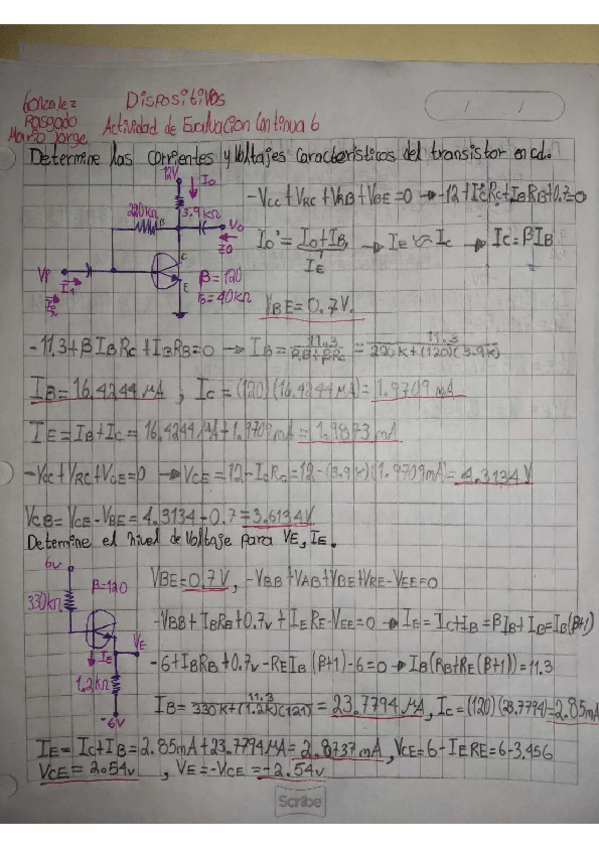 Gonzalez
Rasgado
Mario Jorge
Dispositivos
Actividad de Evaluacion Continua 6
/ /
Determine las corrientes y Voltajes característicos del transistor en cd.
12V
Io
220kΩ
3.9kΩ
B
C
E
Vo
Zo
Vi
Ii
β=120
ro=40kΩ
-Vcc+VRC+VRB+VBE=0 → -12+Ic'Rc+IBRB+0.7=0
Io'=Io+IB → IE≈Ic → Ic=βIB
IE
VBE=0.7V.
-11.3+βIBRc+IBRB=0 → IB=11.3/(RB+βRc)=11.3/(220k+(120)(3.9k))
IB=16.4244μA, Ic=(120)(16.4244μA)=1.9709mA
IE=IB+Ic=16.4244μA+1.9709mA=1.9873mA
-Vcc+VRC+VCE=0 → VCE=12-IcRc=12-(3.9k)(1.9709mA)=4.3134V
VCB=VCE-VBE=4.3134-0.7=3.6134V
Determine el nivel de Voltaje para VE, IE.
6v
β=120
330kΩ
VE
IE
1.2kΩ
-6V
VBE=0.7V, -VBB+VRB+VBE+VRE-VEE=0
-VBB+IBRB+0.7v+IERE-VEE=0 → IE=Ic+IB=βIB+IB=IB(β+1)
-6+IBRB+0.7v-REIB(β+1)-6=0 → IB(RB+RE(β+1))=11.3
IB=11.3/(330k+(1.2k)(121))=23.7794μA, Ic=(120)(23.7794)=2.85mA
IE=Ic+IB=2.85mA+23.7794μA=2.8737mA, VCE=6-IERE=6-3.456
VCE=2.54v, VE=-VCE=-2.54v
Scribe